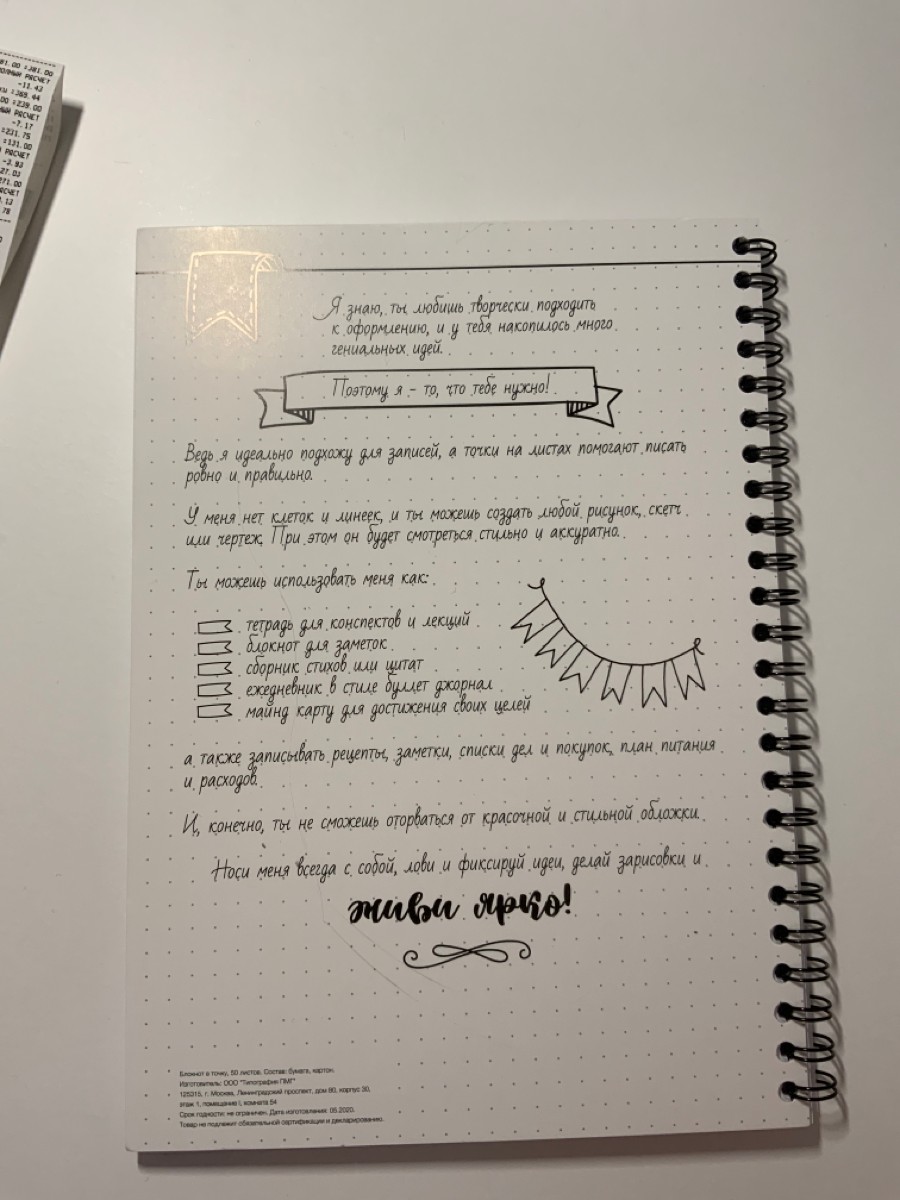 01.00 =381.00
ПОЛНЫЙ РАСЧЕТ
-11.43
=369.44
00 =239.00
НЫЙ РАСЧЕТ
-7.17
=231.75
=131.00
РАСЧЕТ
-3.93
27.03
271.00
РАСЧЕТ
.13
.78
Я знаю, ты любишь творчески подходить
к оформлению, и у тебя накопилось много
гениальных идей.
Поэтому я – то, что тебе нужно!
Ведь я идеально подхожу для записей, а точки на листах помогают писать
ровно и правильно.
У меня нет клеток и линеек, и ты можешь создать любой рисунок, скетч
или чертеж. При этом он будет смотреться стильно и аккуратно.
Ты можешь использовать меня как:
тетрадь для конспектов и лекций
блокнот для заметок
сборник стихов или цитат
ежедневник в стиле буллет джорнал
майнд карту для достижения своих целей
а также записывать рецепты, заметки, списки дел и покупок, план питания
и расходов.
И, конечно, ты не сможешь оторваться от красочной и стильной обложки.
Носи меня всегда с собой, лови и фиксируй идеи, делай зарисовки и
живи ярко!
Блокнот в точку, 60 листов. Состав: бумага, картон.
Изготовитель: ООО "Типография ПМГ"
125315, г. Москва, Ленинградский проспект, дом 80, корпус 30,
этаж 1, помещение I, комната 54
Срок годности: не ограничен. Дата изготовления: 05.2020.
Товар не подлежит обязательной сертификации и декларированию.